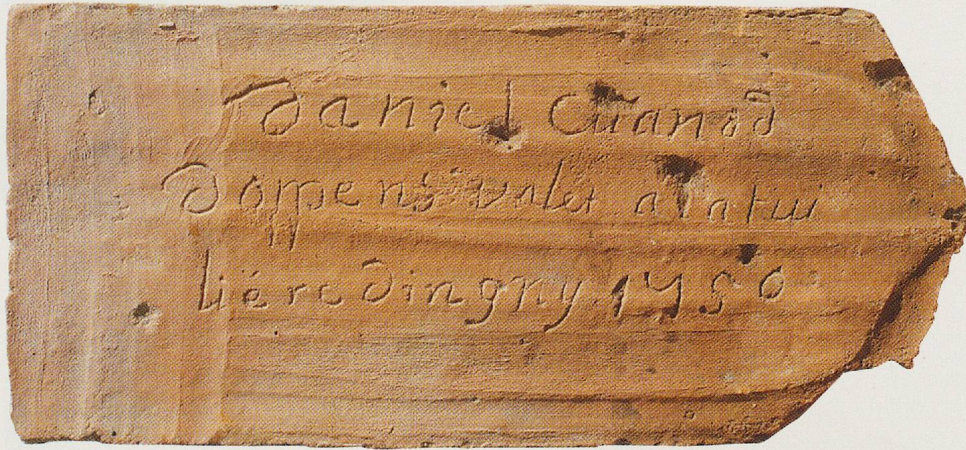 Daniel Cuanod
Doppens valet a la tui
liére dingny 1750